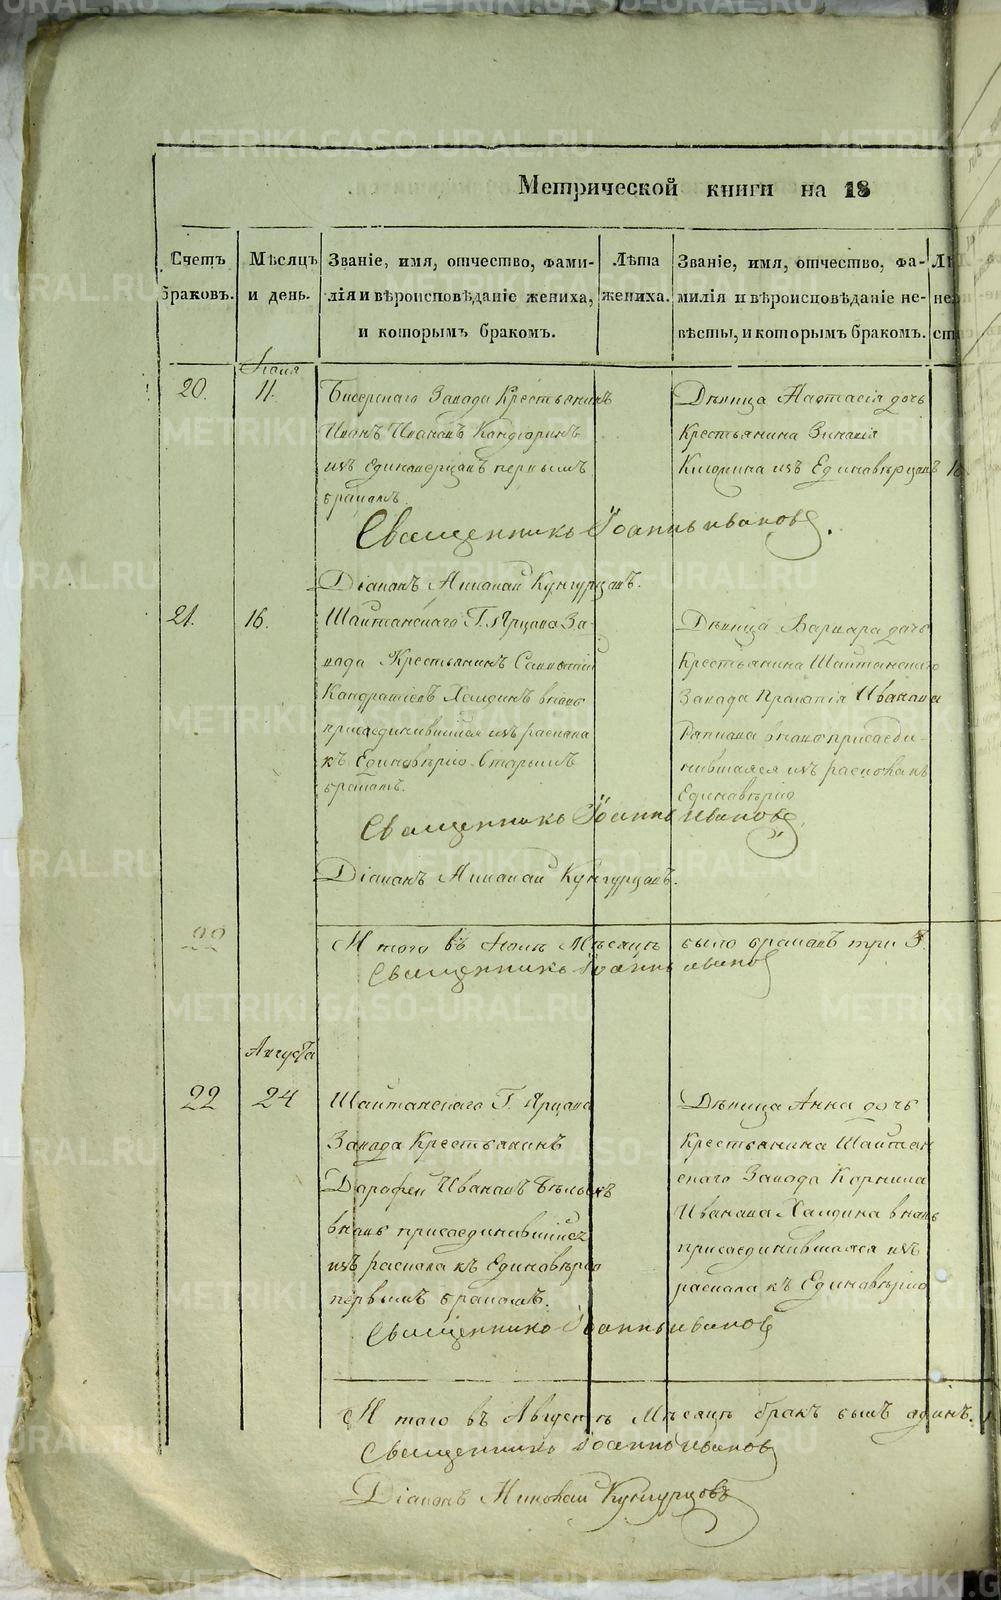 Метрической книги на 18
Счетъ браковъ.
Мѣсяцъ и день.
Званіе, имя, отчество, фами-
лія и вѣроисповѣданіе жениха,
и которымъ бракомъ.
Лѣта
жениха.
Званіе, имя, отчество, фа-
милія и вѣроисповѣданіе не-
вѣсты, и которымъ бракомъ.
Іюля
20.
11.
Бисерскаго Завода Крестьянинъ
Иванъ Ивановъ
изъ Единоверцовъ первымъ
бракомъ.
Дѣвица Настасія дочь
Крестьянина Зиновія
изъ Единовѣрцовъ
Священникъ Іоаннъ Ивановъ.
Діаконъ Николай Кунгурцовъ.
21.
16.
Шайтанскаго Г. Ярцова За-
вода Крестьянинъ
Кандратіевъ Халдинъ вновь
присоединившійся изъ раскола
къ Единовѣрію вторымъ
бракомъ.
Дѣвица Варвара дочь
Крестьянина Шайтанскаго
Завода Иванова
вновь присоеди-
нившаяся изъ раскола къ
Единовѣрію
Священникъ Іоаннъ Ивановъ
Діаконъ Николай Кунгурцовъ.
22
Итого въ Іюлѣ Мѣсяцѣ было браковъ три 3.
Священникъ Іоаннъ Ивановъ
Августа
22
24
Шайтанскаго Г. Ярцова
Завода Крестьянинъ
Дарофей Ивановъ Бѣлыхъ
вновь присоединившійся
изъ раскола къ Единовѣрію
первымъ бракомъ.
Дѣвица Анна дочь
Крестьянина Шайтан
скаго Завода Корнила
Иванова Халдина вновь
присоединившаяся изъ
раскола къ Единовѣрію
Священникъ Іоаннъ Ивановъ
Итого въ Августѣ Мѣсяцѣ бракъ былъ адинъ.
Священникъ Іоаннъ Ивановъ
Діаконъ Николай Кунгурцовъ
METRIKI.GASO-URAL.RU